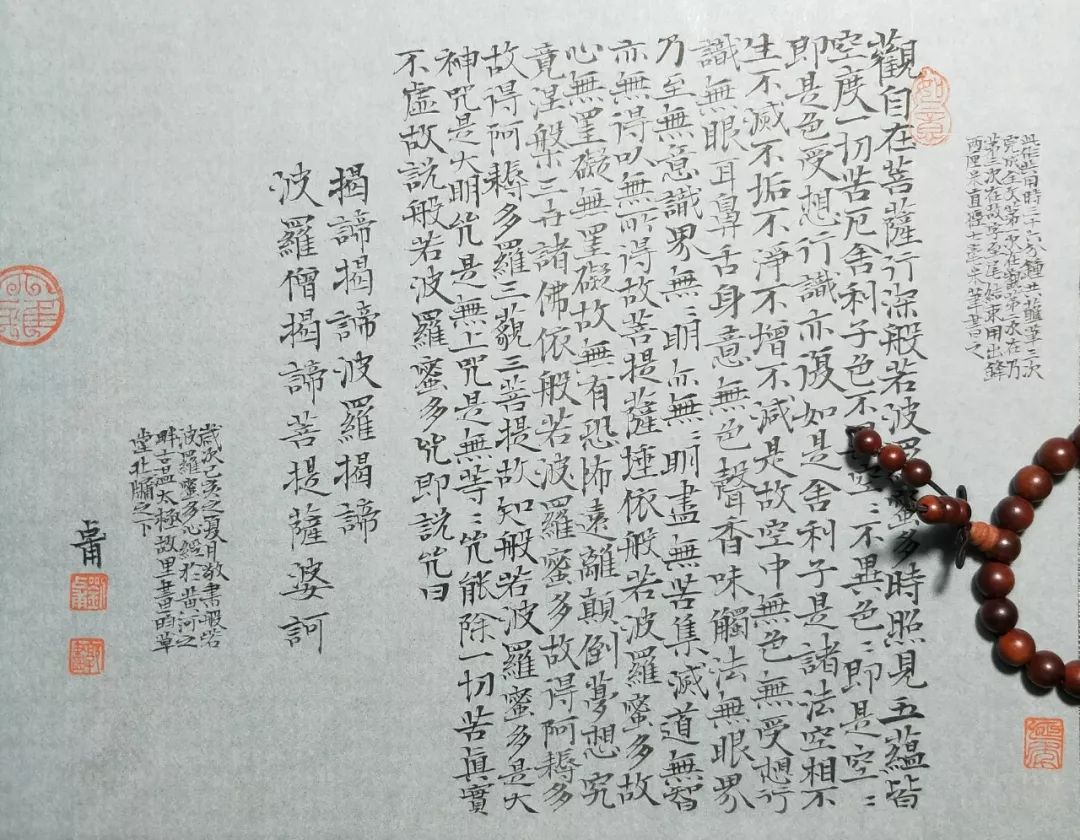 此卷用時三十六分鐘共蘸筆三次
完成全文第一次在觀第二次在乃
第三次在故字至尾結束用出鋒
兩厘米直徑七紫羊筆書之
觀自在菩薩行深般若波羅蜜多時照見五蘊皆
空度一切苦厄舍利子色不異空〻不異色〻即是空〻
即是色受想行識亦復如是舍利子是諸法空相不
生不滅不垢不淨不增不減是故空中無色無受想行
識無眼耳鼻舌身意無色聲香味觸法無眼界
乃至無意識界無〻明亦無〻明盡無苦集滅道無智
亦無得以無所得故菩提薩埵依般若波羅蜜多故
心無罣礙無罣礙故無有恐怖遠離顛倒夢想究
竟涅槃三世諸佛依般若波羅蜜多故得阿耨多
故得阿耨多羅三藐三菩提故知般若波羅蜜多是大
神咒是大明咒是無上咒是無等〻咒能除一切苦真實
不虛故說般若波羅蜜多咒即說咒曰
揭諦揭諦波羅揭諦
波羅僧揭諦菩提薩婆訶
歲次己亥之夏月敬書般若
波羅蜜多心經於黃河之
畔古溫太極故里書昀草
堂北牖之下